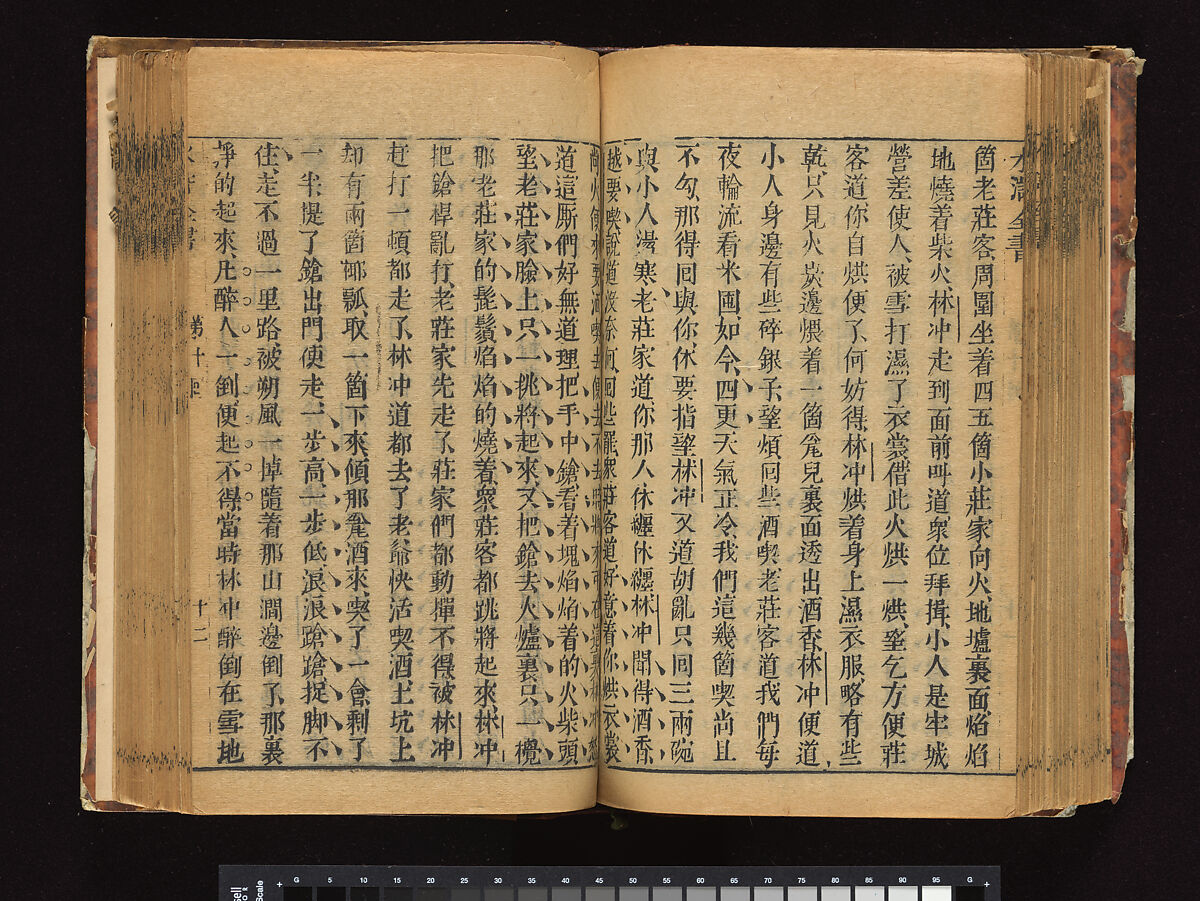 箇老莊客周圍坐着四五箇小莊家向火、地爐裏面焰焰
地燒着柴火、林冲走到面前叫道衆位拜揖、小人是牢城
營差使人、被雪打濕了衣裳借此火烘一烘、望乞方便莊
客道你自烘便了、何妨得、林冲烘着身上濕衣服略有些
乾、只見火炭邊煨着一箇瓮兒裏面透出酒香、林冲便道
小人身邊有些碎銀子、望煩回些酒喫老莊客道我們每
夜輪流看米囤、如今四更天氣正冷、我們這幾箇喫尚且
不勾、那得回與你、休要指望林冲又道胡亂只回三兩碗
與小人湯寒、老莊家道、你那人休纏休纏、林冲聞得酒香、
越要喫說道沒奈何、回些罷、衆莊客道、好意着你烘衣裳
道這厮們好無道理把手中鎗看着塊焰焰着的火柴頭
望老莊家臉上只一挑將起來、又把鎗去火爐裏只一攪
那老莊家的髭鬚焰焰的燒着、衆莊客都跳將起來、林冲
把鎗桿亂打、老莊家先走了、莊家們都動彈不得、被林冲
赶打一頓都走了、林冲道都去了老爺快活喫酒土坑上
却有兩箇椰瓢、取一箇下來、傾那瓮酒來、喫了一會剩了
一半、提了鎗出門便走、一步高、一步低、浪浪蹌蹌捉脚不
住、走不過一里路被朔風一掉隨着那山澗邊倒了、那裏
爭的起來、凡醉人一到、便起不得、當時林冲醉倒在雪地
第十回
十二